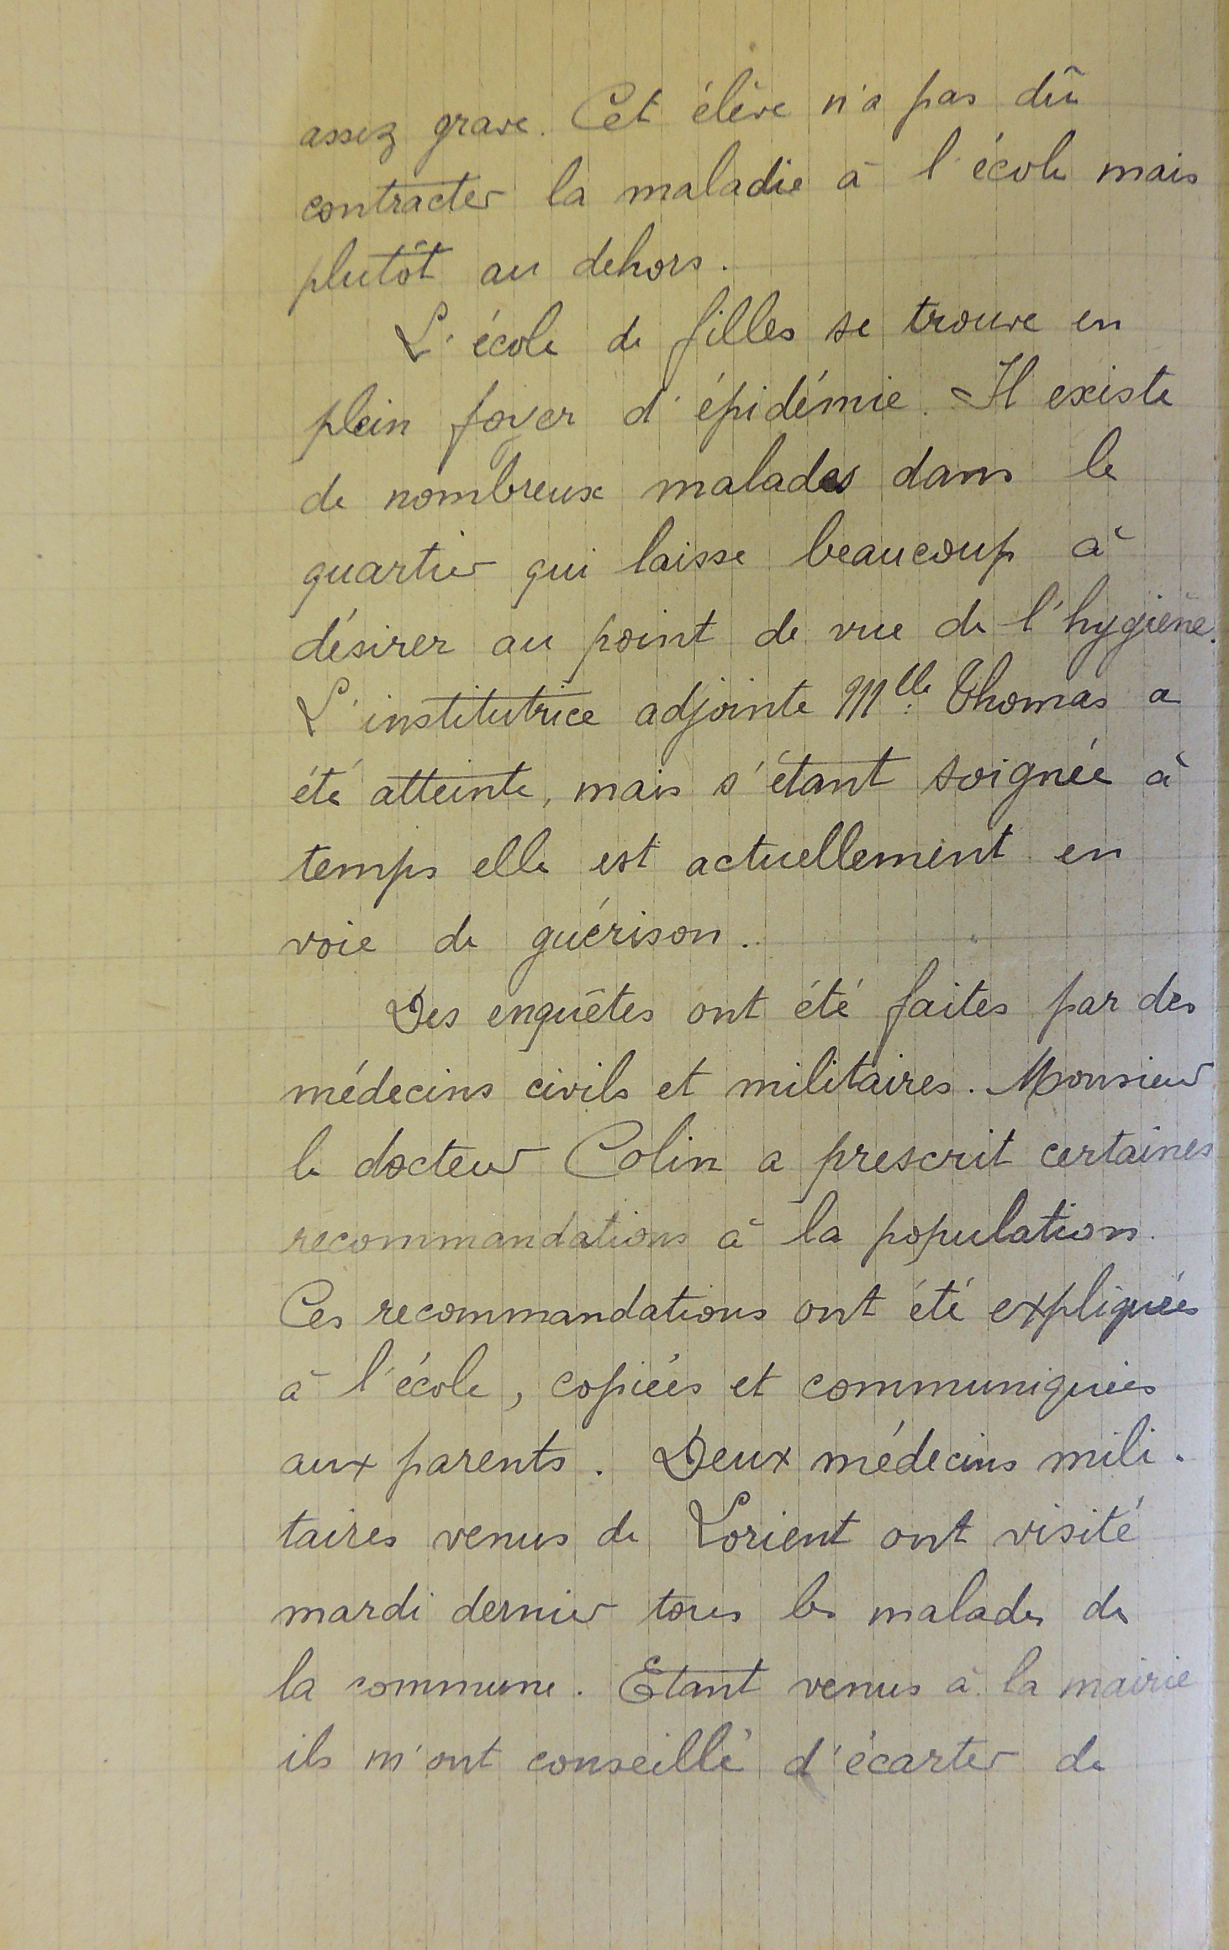 assez grave. Cet élève n'a pas dû
contracter la maladie à l'école mais
plutôt au dehors.
L'école de filles se trouve en
plein foyer d'épidémie. Il existe
de nombreux malades dans le
quartier qui laisse beaucoup à
désirer au point de vue de l'hygiène.
L'institutrice adjointe Mlle Thomas a
été atteinte, mais s'étant soignée à
temps elle est actuellement en
voie de guérison.
Des enquêtes ont été faites par des
médecins civils et militaires. Monsieur
le docteur Colin a prescrit certaines
recommandations à la population.
Ces recommandations ont été expliquées
à l'école, copiées et communiquées
aux parents. Deux médecins mili-
taires venus de Lorient ont visité
mardi dernier tous les malades de
la commune. Etant venus à la mairie
ils m'ont conseillé d'écarter de